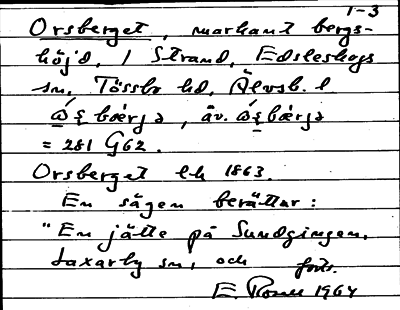 1-3
Orsberget, markant bergs-
höjd, / Strand, Edsleskogs
sn, Tössbo hd, Älvsb. l
bærjə, äv. bærjə
= 281 G62.
Orsberget Ek 1863.
En sägen berättar:
"En jätte på Sundgingen,
Laxarby sn, och forts.
E. 1964